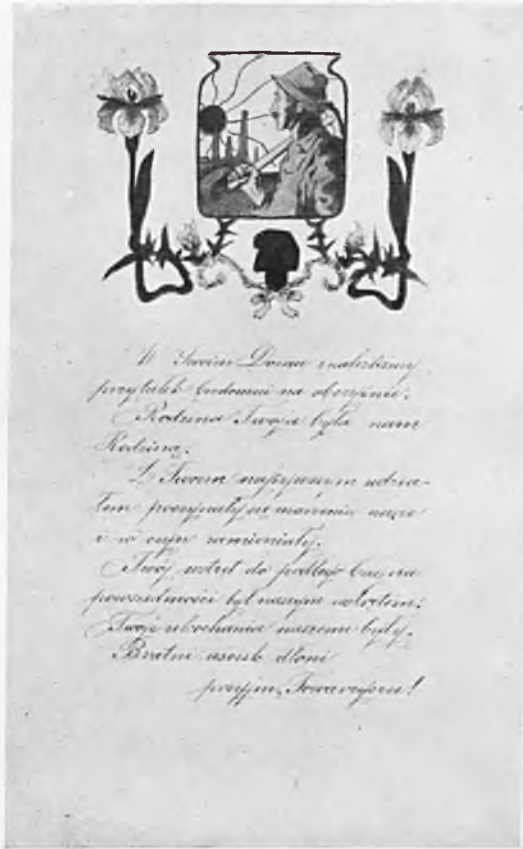 W Twoim Domu znaleźliśmy
przytułek bezdomni na obczyźnie:
Rodzina Twoja była nam
Rodziną.
Z Twoim najżywszym udzia-
łem poczynały się marzenia nasze
i w czyn zamieniały.
Twój wstręt do podłego
powszedniości był naszym wstrętem:
Twoje ukochania naszemi były.
Bratni uścisk dłoni
przyjm, Towarzyszu!